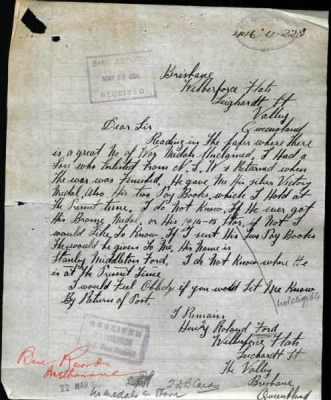 416 U-228
BASE RECORDS
MAR 20
RECEIVED
Brisbane
Wilberforce Flats
Lieghardt St
Valley
Queensland
Dear Sir
Reading in The paper where There
is a great No of War Medals Unclaimed, I Had a
Son who Enlisted From N.S.W & Returned when
The war was Finished, He gave Me His silver Victory
Medal, Also His Two Pay Books which I Hold at
The Present Time. I do Not Know if He Ever got
His Bronze Medal, or His 1914-15 Star, if Not I
would Like To Know if I sent His Two Pay Books
They would be given To Me, His Name is
Stanley Middleton Ford, I do Not Know where He
is at The Present Time
I would Feel Obliged if you would Let Me Know
By Return of Post.
not eligible
I Remain
Henry Roland Ford
Wilberforce Flats
Liechardt St
The Valley
Brisbane
Queensland
RECEIVED
Base Records
Melbourne
22 MAR
2 DB Cards
no medals in Store